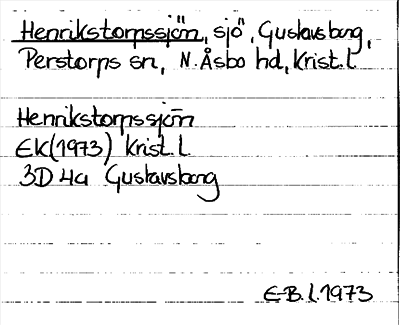 Henrikstorpssjön, sjö, Gustavsborg,
Perstorps sn, N. Åsbo hd, Krist. l
Henrikstorpssjön
EK(1973) Krist. l
3D 4a Gustavsborg
E-B. l. 1973